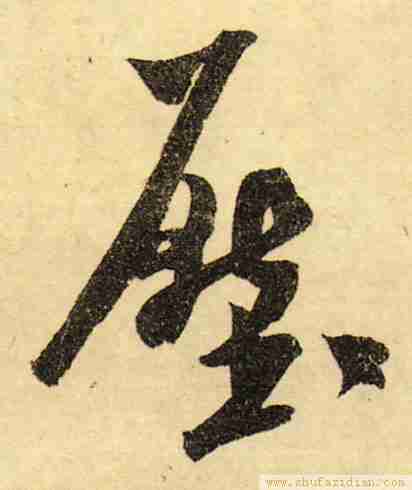 壓
www.shufazidian.com